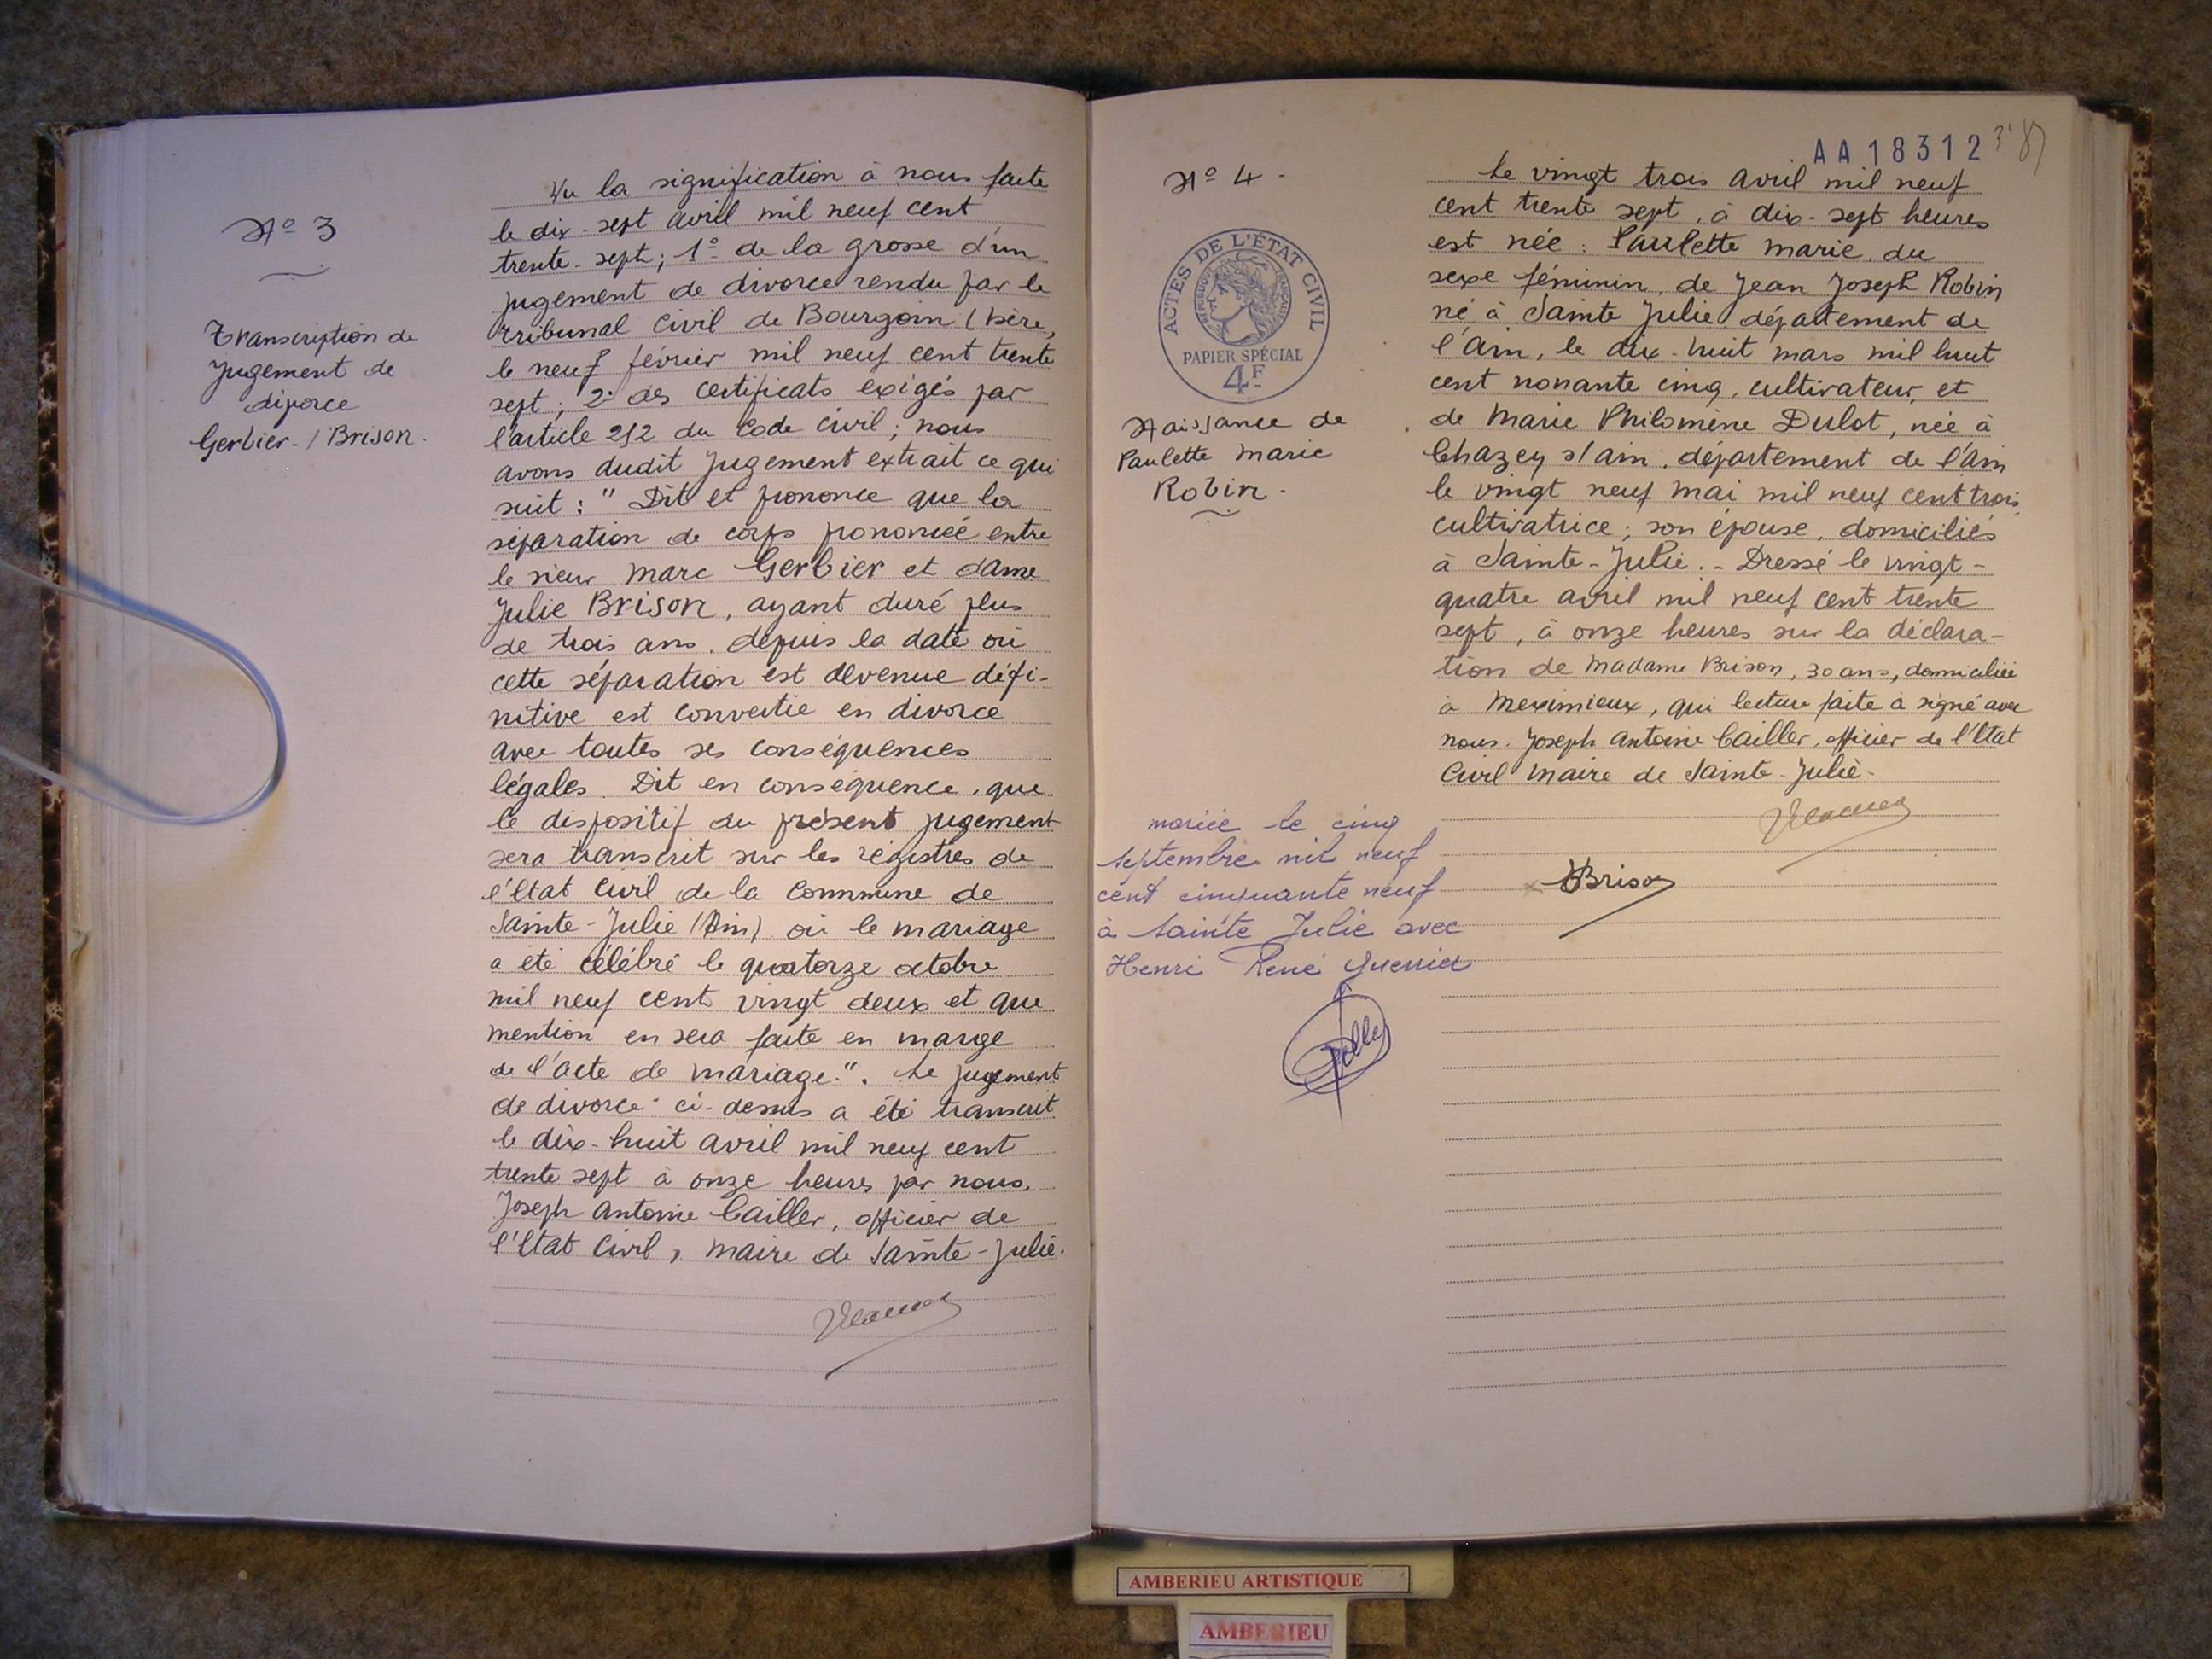 N° 3
Transcription de
jugement de
divorce
Gerbier-/Brison.
Vu la signification à nous faite
le dix-sept avril mil neuf cent
trente-sept; 1° de la grosse d'un
jugement de divorce rendu par le
Tribunal Civil de Bourgoin (Isère,
le neuf février mil neuf cent trente
sept; 2° des certificats exigés par
l'article 252 du Code Civil; nous
avons dudit jugement extrait ce qui
suit: "Dit et prononce que la
séparation de corps prononcée entre
le sieur Marc Gerbier et dame
Julie Brison, ayant duré plus
de trois ans, depuis la date où
cette séparation est devenue défi-
nitive est convertie en divorce
avec toutes ses conséquences
légales. Dit en conséquence, que
le dispositif du présent jugement
sera transcrit sur les registres de
l'Etat Civil de la Commune de
Sainte-Julie (Ain) où le mariage
a été célébré le quatorze octobre
mil neuf cent vingt deux et que
mention en sera faite en marge
de l'acte de mariage.". Le jugement
de divorce ci-dessus a été transcrit
le dix-huit avril mil neuf cent
trente sept à onze heures par nous,
Joseph Antoine Cailler, officier de
l'Etat Civil, maire de Sainte-Julie.
AA18312
N° 4.
ACTES DE L'ÉTAT CIVIL
RÉPUBLIQUE FRANÇAISE
PAPIER SPÉCIAL
4F
Naissance de
Paulette Marie
Robin.
Le vingt trois avril mil neuf
cent trente sept, à dix-sept heures
est née: Paulette Marie, du
sexe féminin, de Jean Joseph Robin
né à Sainte Julie département de
l'Ain, le dix-huit mars mil huit
cent nonante cinq, cultivateur, et
de Marie Philomène Dulot, née à
Chazey s/ain, département de l'Ain
le vingt neuf mai mil neuf cent trois
cultivatrice; son épouse, domiciliés
à Sainte-Julie.- Dressé le vingt-
quatre avril mil neuf cent trente
sept, à onze heures sur la déclara-
tion de Madame Brison, 30 ans, domiciliée
à Meximieux, qui lecture faite a signé avec
nous. Joseph Antoine Cailler, officier de l'Etat
Civil Maire de Sainte-Julie.
Brison
mariée le cinq
septembre mil neuf
cent cinquante neuf
à Sainte Julie avec
Henri René
AMBERIEU ARTISTIQUE
AMBERIEU